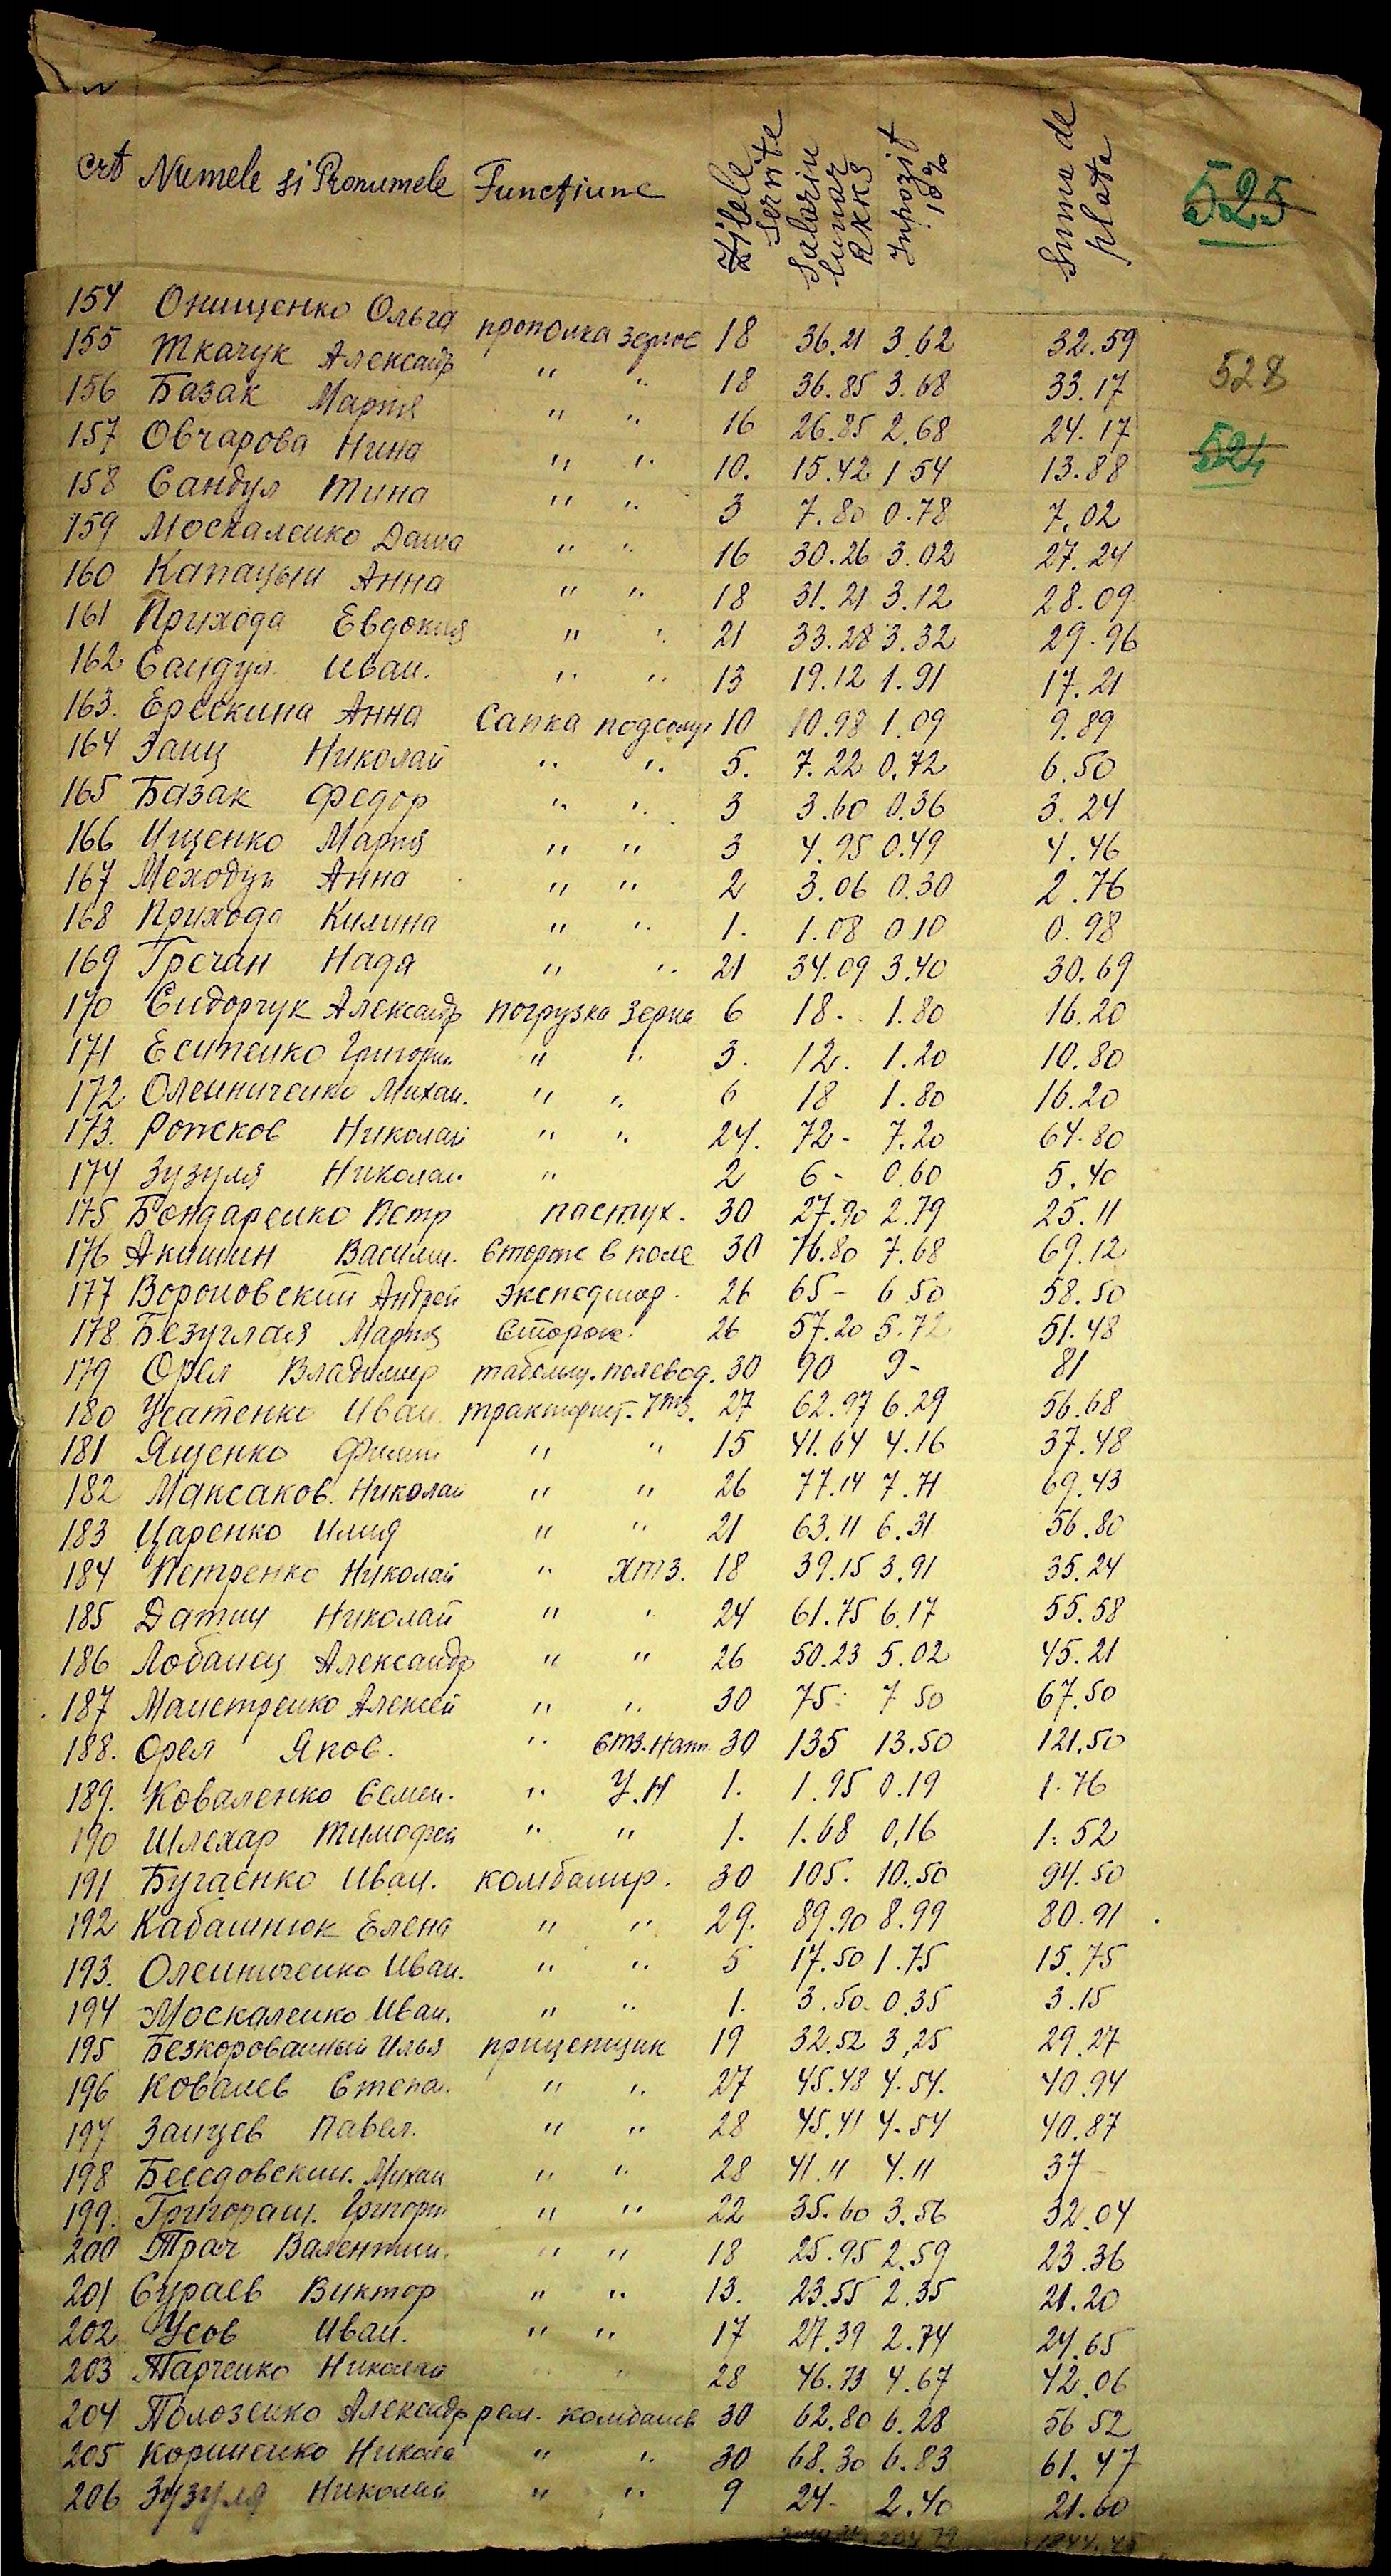 crt Numele si Pronumele Funcțiune Zilele servite Salariu lunar RKKS Inpozit 10% Suma de plata 525
154 Онищенко Ольга прополка 18 36.21 3.62 32.59
155 Ткачук Александр " " 18 36.85 3.68 33.17 528
156 Базак Мария " " 16 26.85 2.68 24.17
157 Овчарова Нина " " 10. 15.42 1.54 13.88 524
158 Сандул Тина " " 3 7.80 0.78 7.02
159 Москаленко Даша " " 16 30.26 3.02 27.24
160 Капацын Анна " " 18 31.21 3.12 28.09
161 Приход​а Евдокия " " 21 33.28 3.32 29.96
162 Сандул Иван. " " 13 19.12 1.91 17.21
163. Ерескина Анна Сапка подсолн 10 10.98 1.09 9.89
164 Заиц Николай " " 5. 7.22 0.72 6.50
165 Базак Федор " " 3 3.60 0.36 3.24
166 Ищенко Мария " " 3 4.95 0.49 4.46
167 Анна " " 2 3.06 0.30 2.76
168 Прихода Килина " " 1. 1.08 0.10 0.98
169 Гречан Надя " " 21 34.09 3.40 30.69
170 Сидорчук Александр погрузка зерна 6 18-. 1.80 16.20
171 Еситенко Григорий " " 3. 12. 1.20 10.80
172 Олейниченко Михаи. " " 6 18 1.80 16.20
173. Рожков Николай " " 24. 72- 7.20 64.80
174 Зузуля Николаи " 2 6- 0.60 5.40
175 Бондаренко Петр пастух. 30 27.90 2.79 25.11
176 Акишин Васили. Сторож в поле 30 76.80 7.68 69.12
177 Вороновский Андрей экспедитор. 26 65- 6.50 58.50
178. Безуглая Мария Сторож. 26 57.20 5.72 51.48
179 Орел Владимир табельщ. полевод. 30 90 9- 81
180 Усатенко Иван тракторист. УТЗ. 27 62.97 6.29 56.68
181 Ященко Филип " " 15 41.64 4.16 37.48
182 Максаков. Николай " " 26 77.14 7.71 69.43
183 Царенко Илия " " 21 63.11 6.31 56.80
184 Петренко Николай " ХТЗ. 18 39.15 3.91 35.24
185 Датий Николай " " 24 61.75 6.17 55.58
186 Лобанец Александр " " 26 50.23 5.02 45.21
187 Маистренко Алексей " " 30 75- 7.50 67.50
188. Орел Яков. " СТЗ. Нати 30 135 13.50 121.50
189. Коваленко Семен. " У.Н 1. 1.95 0.19 1.76
190 Шлехар Тимофей " " 1. 1.68 0,16 1.52
191 Бугаенко Иван. комбаинр. 30 105. 10.50 94.50
192 Кабашнюк Елена " " 29. 89.90 8.99 80.91
193. Олейниченко Иван. " " 5 17.50 1.75 15.75
194 Москаленко Иван. " " 1. 3.50. 0.35 3.15
195 Безкорованный Илья прицепщик 19 32.52 3,25 29.27
196 Ковалев Степа. " " 27 45.48 4.54. 40.94
197 Заицев Павел. " " 28 45.41 4.54 40.87
198 Беседовскии. Михаи " " 28 41.11 4.11 37-
199. Григоращ. Григори " " 22 35.60 3.56 32.04
200 Трач Валентин. " " 18 25.95 2.59 23.36
201 Сураев Виктор " " 13. 23.55 2.35 21.20
202 Усов Иван. " " 17 27.39 2.74 24.65
203 Тарченко Николай " " 28 46.73 4.67 42.06
204 Полозенко Александр рем. комбаинв 30 62.80 6.28 56 52
205 Корниенко Никола " " 30 68.30 6.83 61.47
206 Зузуля Николай " " 9 24- 2.40 21.60